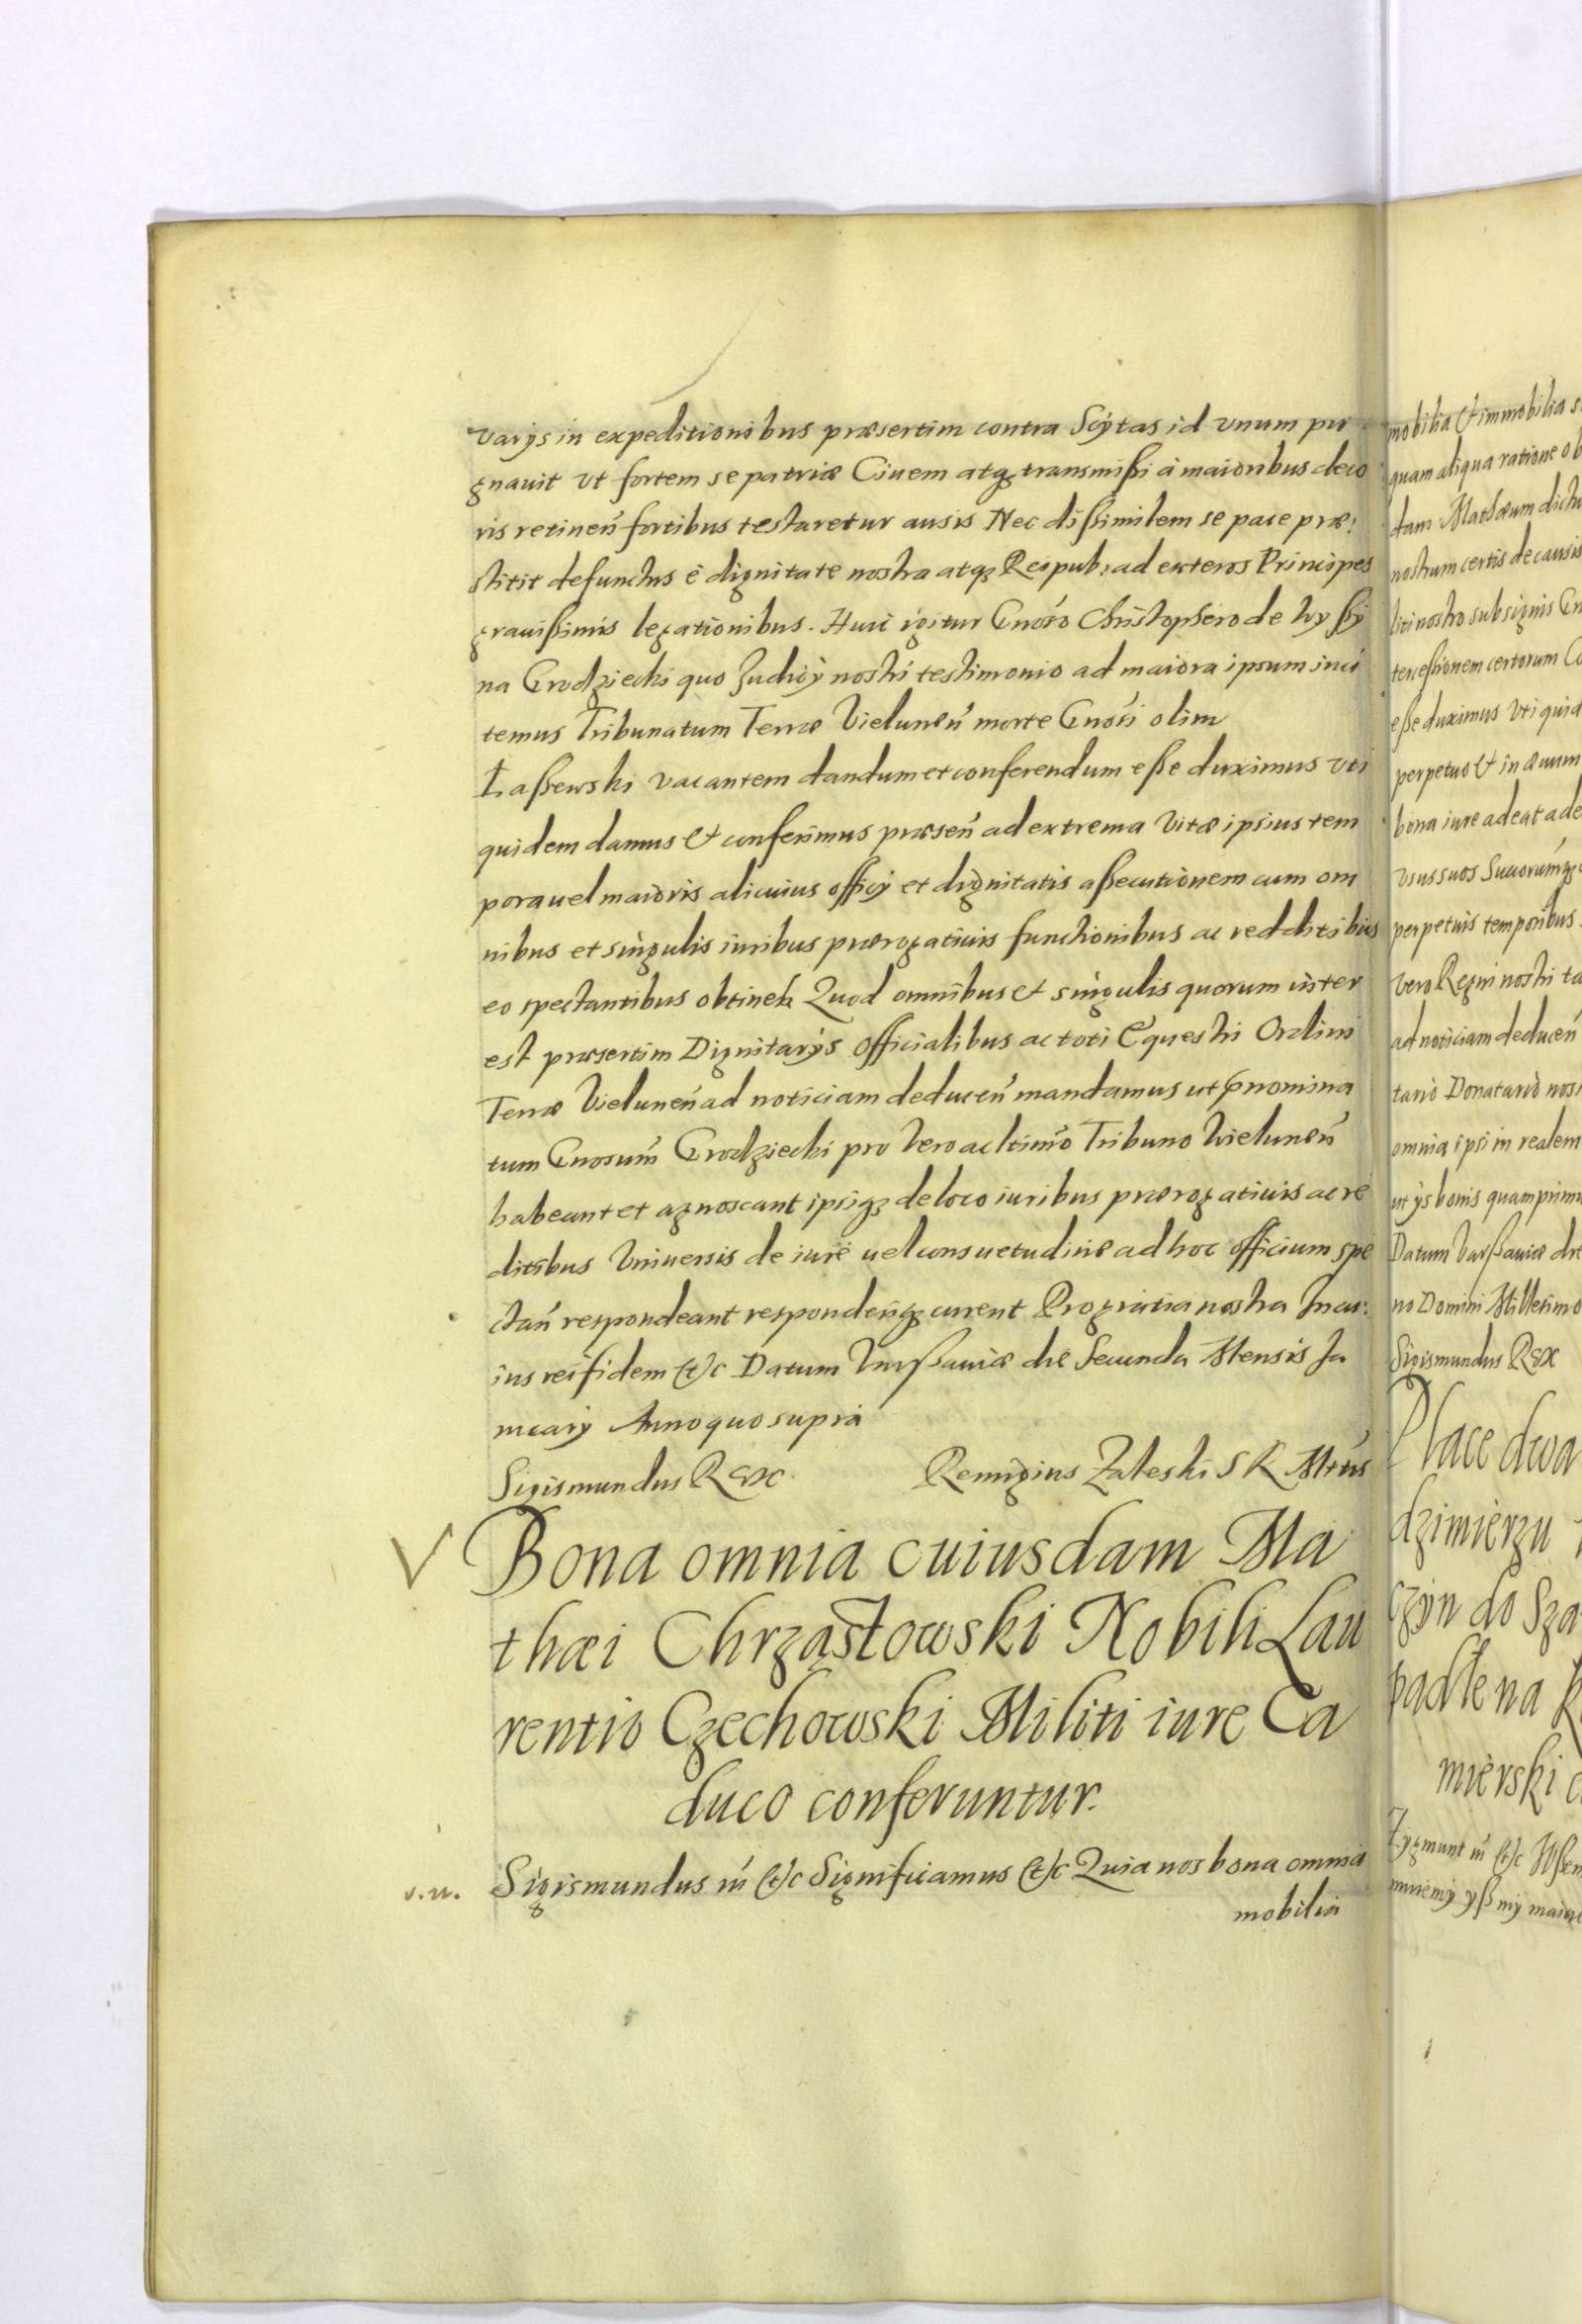 varijs in expeditionibus præsertim contra Scÿtas id vnum pu
gnauit vt fortem se patriæ Ciuem atq3 transmißi à maioribus deco
ris retineń fortibus testaretur ausis Nec dißimilem se pace præ:
stitit defunctus è dignitate nostra atq3 Reipub: ad exteros Principes
grauißimis legationibus. Huic igitur Gnóso Christophero de Wyßÿ
na Grodziecki quo Judicÿ nostri testimonio ad maiora ipsum inui
temus Tribunatum Terræ Vieluneń morte Gnósi olim
Łaßewski vacantem dandum et conferendum eße duximus vti
quidem damus & conferimus præseń ad extrema vitæ ipsius tem
pora uel maioris alicuius officÿ et dignitatis aßecutionem cum om
nibus et singulis iuribus prærogatiuis functionibus ac redditibus
eo spectantibus obtineń Quod omnibus & singulis quorum inter
est præsertim Dignitarÿs Officialibus ac toti Equestri Ordini
Terræ Vieluneń ad noticiam deduceń mandamus ut pnomina
tum Gnosum Grodziecki pro vero ac ltimo Tribuno Vieluneń
habeant et agnoscant ipsiq3 de loco iuribus prærogatiuis ac re
ditibus vniuersis de iure uel consuetudine ad hoc officium spe
ctań respondeant responderiq3 curent Pro gratia nostra In cu:
ius rei fidem &c Datum Varßauiæ die Secunda Mensis Ja
nuarÿ Anno quo supra
Sigismundus Rex Remigius Zaleski S R Mtis
V Bona omnia cuiusdam Ma
thæi Chrząstowski Nobili Lau
rentio Czechowski Militi iure Ca
duco conferuntur.
v.n. Sigismundus ń &c Significamus &c Quia nos bona omnia
mobilia
mobilia & immobilia
quam aliqua ratione ob
dam Mathæum dictu
nostrum certis de causis
liti nostro sub signis
terceßionem certorum
eße duximus vti quid
perpetuo & in æuum
bona iure adeat ade
vsus suos Suorumq3
perpetuis temporibus
vero Regni nostri
ad noticiam deduceń
tario Donatario
omnia ipsi in realem
ut ÿs bonis quamprimu
Datum Varßauiæ die
no Domini Millesimo
Sigismundus Rex
Place dwa
dzimierzu
czÿn do Sza
padłe na
mierski
Zygmunt ń &c Wßem
mniemÿ yß mÿ maiąc